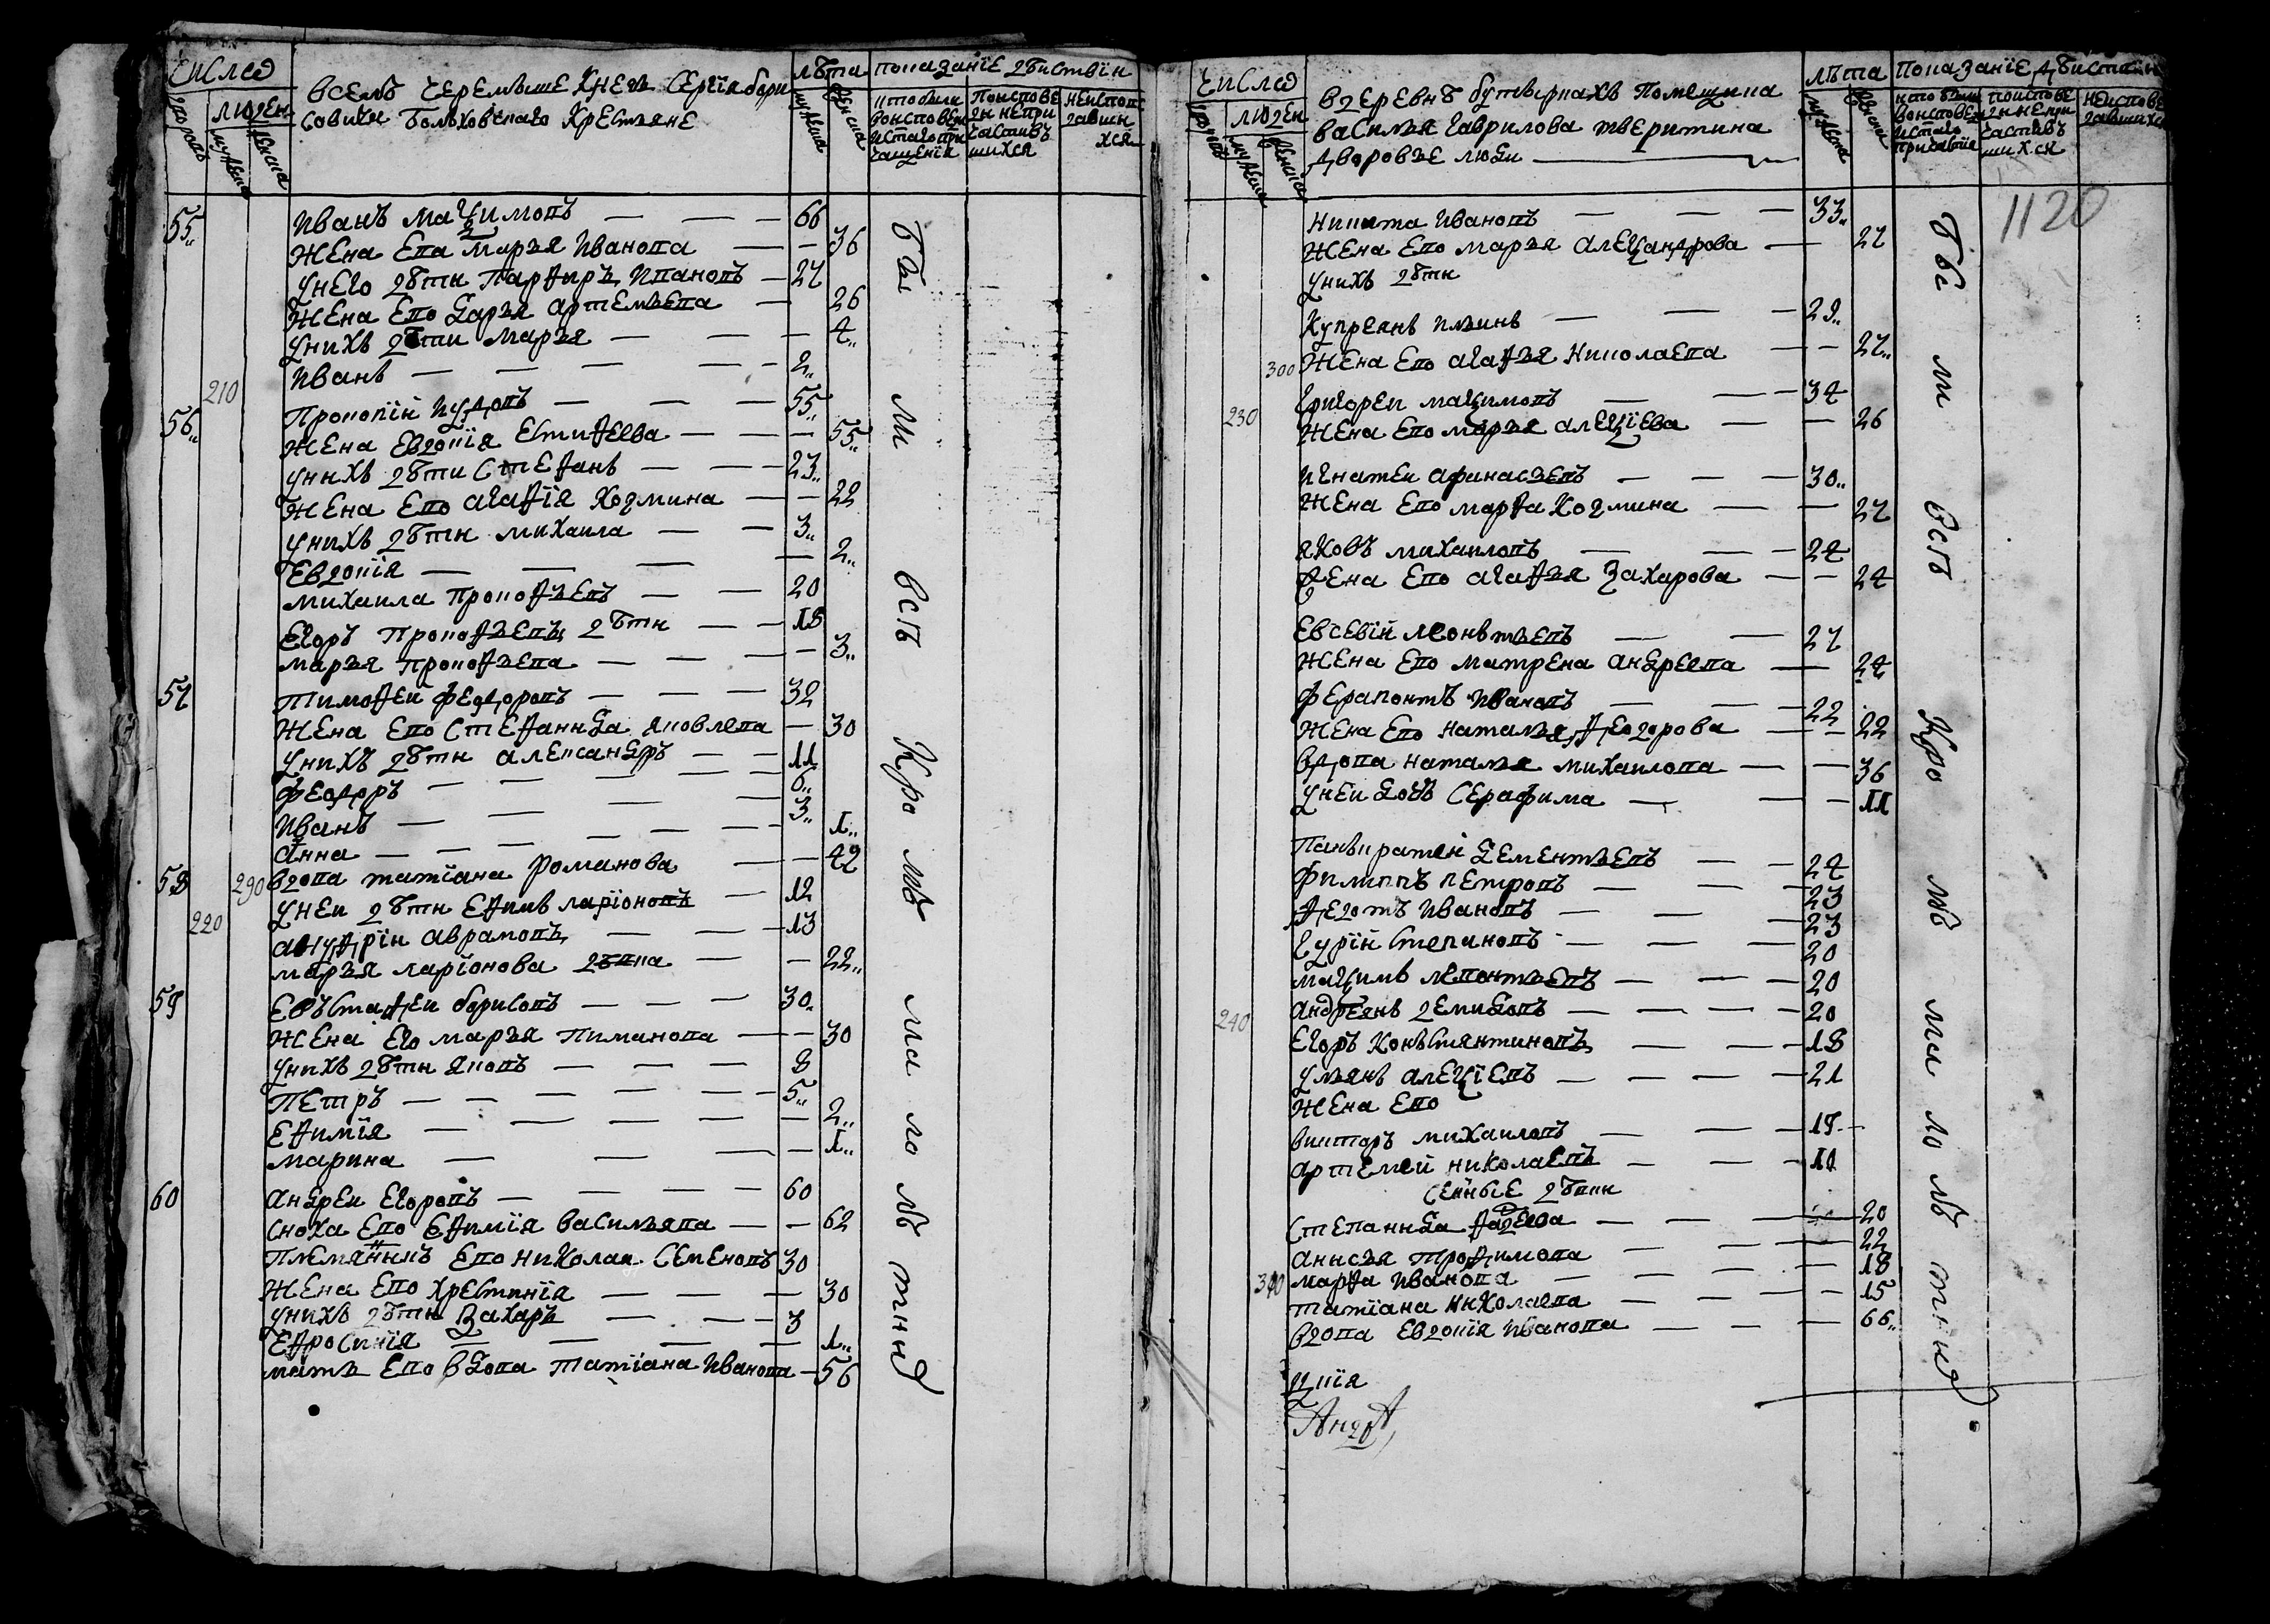 число
дворовъ
людей
мужеска
женска
Вселѣ Черемыше Кнезь Сергія бори
совичи Больховскаго Крестьяне
лѣта
мужеска
женска
показаніе дѣиствїи
кто были
воисповеди
исташо при
чащенія
поиспове
ди непри
частивъ
шихся
неиспов
давши
хся
55
Иванъ Мазимовъ — — — 66
Жена Ево Марья Иванова — — 36
Унего дѣти Парфиръ Ивановъ — 27
Жена Ево Дарья Артемьева — 26
Унихъ дѣти Марья — — — 4
Иванъ — — — — 2
210
56
Прокопій Иудовъ — — — 55
Жена Евдокія Естифеева — — — 55
Унихъ дѣти Стефанъ — — — 23
Жена Ево Агафія Козмина — — 22
Унихъ дѣти Михаила — — 3
Евдокія — — — — 2
Михаила Прокофьевъ — — 20
Егоръ Прокофьевъ дѣти — — 18
Марья Прокофьева — — — — 3
57
Тимофей Федоровъ — — — 32
Жена Ево Стефанида Яковлева — 30
Унихъ дѣти Александръ — — 11
Феодоръ — — — — 6
Иванъ — — — — 3
Анна — — — — 1
58
290
Вдова Татіана Романова — — 42
Уней дѣти Ефимъ Ларіоновъ — 12
220
Ануфрій Аврамовъ — — — 13
Марья Ларіонова дѣвка — — 22
59
Евъстафеи Борисовъ — — — 30
Жена Его Марья Пиманова — — 30
Унихъ дѣти Яковъ — — — 8
Петръ — — — — — 5
Ефимія — — — — — 2
Марина — — — — 1
60
Андреи Егоровъ — — — — 60
Сноха Ево Ефимія Васильява — — 62
Племянникъ Ево Николаи Семеновъ 30
Жена Ево Хрестинія — — — 30
Унихъ дѣти Захаръ — — — 3
Ефросинія — — — — 1
Мать Ево Вдова Татіана Иванова — 56
Бы ли всѣ Кро мѣ ма ло лѣ тнид
число
дворовъ
людей
мужеска
женска
Вдеревнѣ бутырпахъ Помещика
Василья Гаврилова Тверитина
дворовые люди
лѣта
мужеска
женска
показаніе дѣистаїи
кто были
воисповеди
исташо
причастіа
поиспове
ди непри
частивъ
шихся
неиспове
давшихся
1120
Никита Ивановъ — — — 33
Жена Ево Марья Алеџандрова — 27
Унихъ дѣти
Купреянъ Ильинъ — — — 29
300
Жена Ево Агафья Николаева — — 27
230
Григореи Мазимовъ — — 34
Жена Ево Марья Алеџіева — — 26
Игнатеи Афинасьевъ — — — 30
Жена Ево Марфа Козмина — — 27
Яковъ Михаиловъ — — — 24
Жена Ево Агафья Захарова — — 24
Евсевій Леонтьевъ — — 27
Жена Ево Матрена Андреева — 24
Ферапонтъ Ивановъ — — — 22
Жена Ево Наталья Феодорова — — 22
Вдова Наталья Михаилова — — 36
Уней дочь Серафима — — — 11
Панъкратей Дементьевъ — — 24
Филиппъ Петровъ — — — 23
Федотъ Ивановъ — — — 23
Гурій Степановъ — — — 20
Мазимъ Левонтьевъ — — — 20
Андреянъ Демидовъ — — — — 20
240
Егоръ Конъстянтиновъ — — — 18
Ульянъ Алеџіевъ — — — — 21
Жена Ево
Викторъ Михаиловъ — — — 19
Артемей Николаевъ — — — 11
Сенные дѣвки
Степанида Фадеева — — — 20
Анисья Трофимова — — — 22
340
Марфа Иванова — — — — 18
Татіана Николаева — — — — 15
Вдова Евдокія Иванова — — — 66
Бы ли всѣ Кро мѣ ма ло лѣ тнид